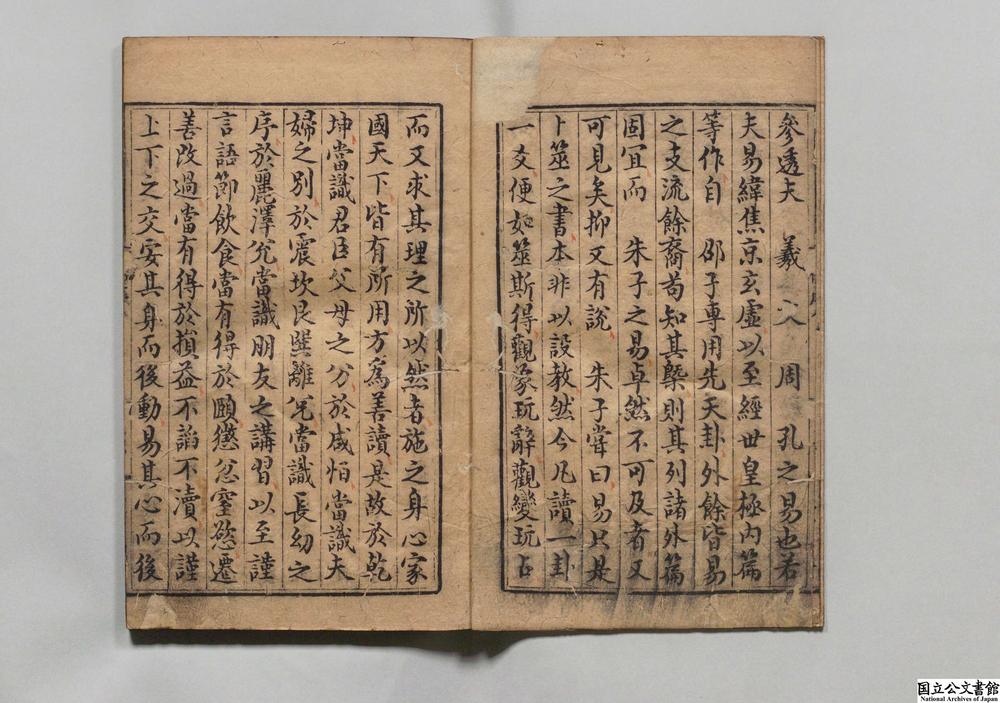 參透夫　羲　文　周　孔之易也若
夫易緯焦京玄虛以至經世皇極內篇
等作自　邵子專用先天卦外餘皆易
之支流餘裔苟知其槩則其列諸外篇
固宜而　朱子之易卓然不可及者又
可見矣抑又有說　朱子甞曰易只是
卜筮之書本非以設教然今凡讀一卦
一爻便如筮斯得觀象玩辭觀變玩占
而又求其理之所以然者施之身心家
國天下皆有所用方為善讀是故於乾
坤當識君臣父母之分於咸恒當識夫
婦之別於震坎艮巽離兌當識長幼之
序於麗澤兌當識朋友之講習以至謹
言語節飲食當有得於頤懲忿窒慾遷
善改過當有得於損益不諂不瀆以謹
上下之交安其身而後動易其心而後
国立公文書館
National Archives of Japan